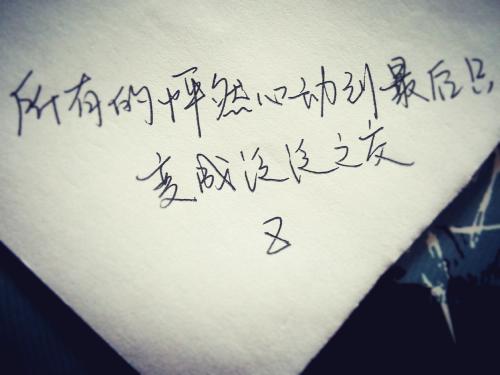 所有的怦然心动到最后只
变成泛泛之交